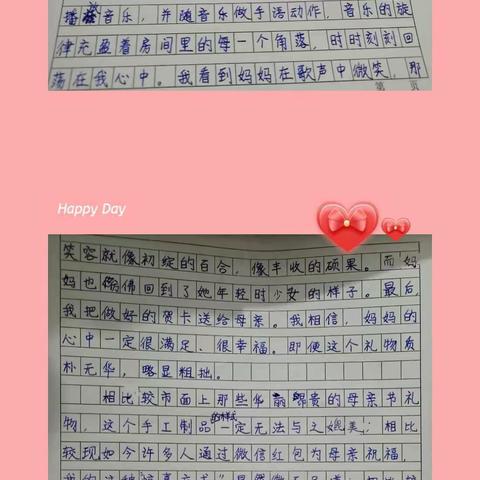 播放音乐，并随音乐做手活动作，音乐的旋
律充盈着房间里的每一个角落，时时刻刻回
荡在我心中。我看到妈妈在歌声中微笑，那
第 页
Happy Day
笑容就像初绽的百合，像丰收的硕果。而妈
妈也仿佛回到了她年轻时少女的样子。最后，
我把做好的贺卡送给母亲。我相信，妈妈的
心中一定很满足、很幸福。即便这个礼物质
朴无华，略显粗拙。
相比较市面上那些华丽昂贵的母亲节礼
物，这个手工制品的样式一定无法与之媲美；相比
较现如今许多人通过微信红包为母亲祝福，
我的这种